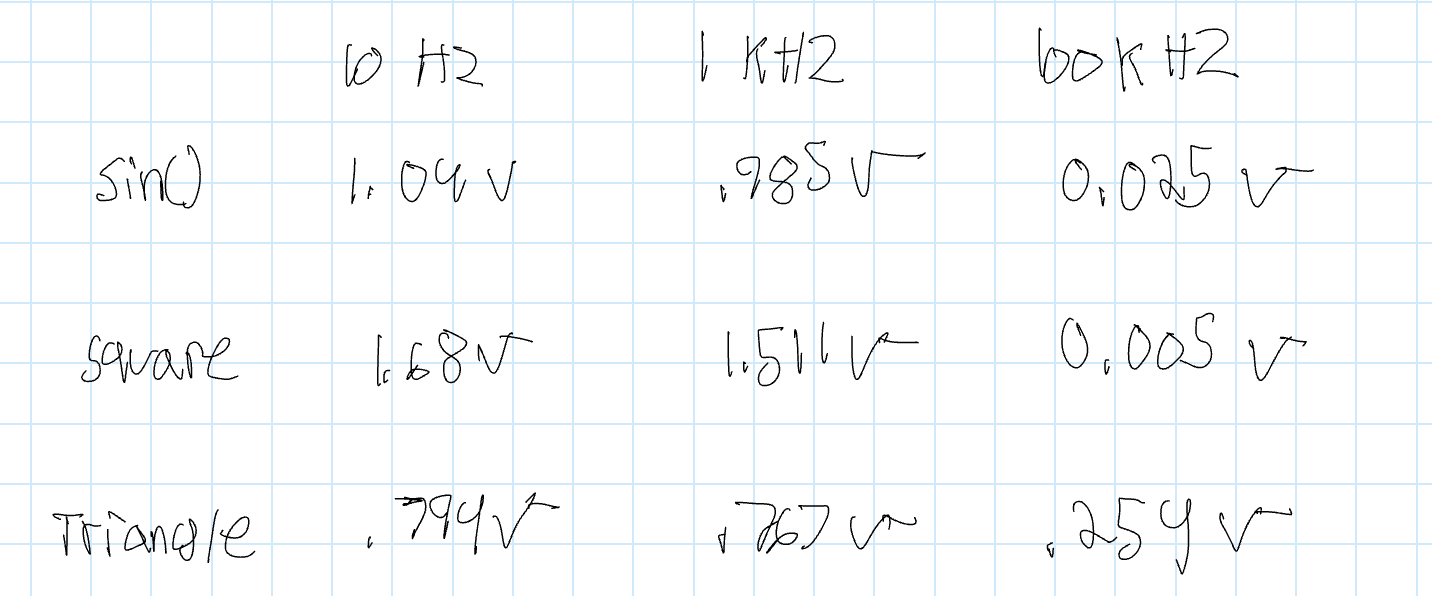 10 Hz 1 KHz 100KHz
sin() 1.04 V .985 V 0.025 V
square 1.68 V 1.511 V 0.005 V
Triangle .794 V .767 V .254 V